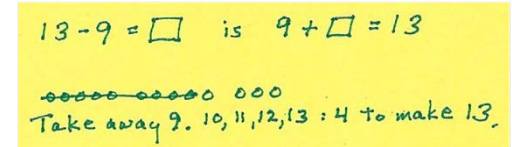 13-9=□ is 9+□=13
ooooo ooooo ooo
Take away 9. 10, 11, 12, 13 : 4 to make 13.